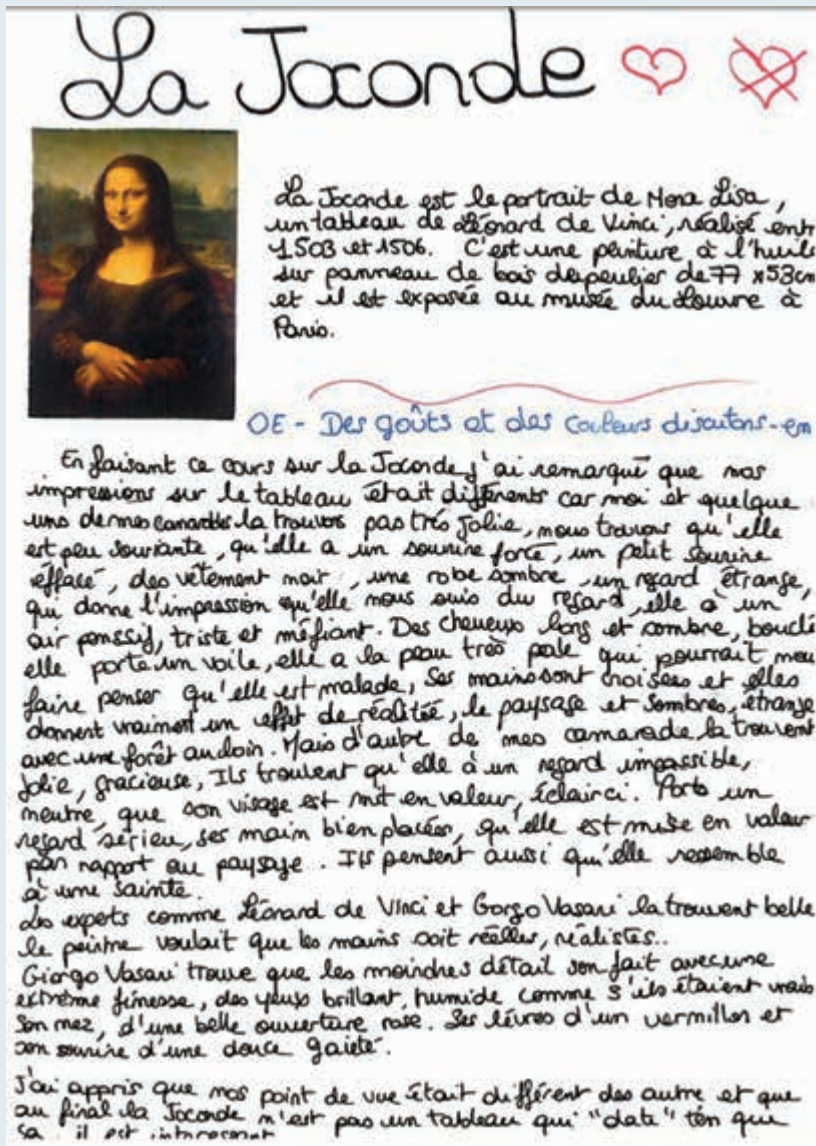 La Joconde
La Joconde est le portrait de Mona Lisa,
un tableau de Léonard de Vinci, réalisé entr
1503 et 1506. C'est une peinture à l'huile
sur panneau de bois de peulier de 77 x53cm
et il est exposée au musée du Louvre à
Paris.
OE - Des goûts et des couleurs discutons-en
En faisant ce cours sur la Joconde j'ai remarqué que nos
impressions sur le tableau était différents car moi et quelque
uns de mes la trouvons pas très jolie, nous trouvons qu'elle
est peu souriante, qu'elle a un sourire forcé, un petit sourire
effacé, des vêtement noir, une robe sombre, un regard étrange,
qui donne l'impression qu'elle nous suis du regard, elle à un
air penssif, triste et méfiant. Des cheveux long et sombre, bouclé
elle porte un voile, elle a la peau très pale qui pourrait nou
faire penser qu'elle est malade, Ses mains sont croisées et elles
donnent vraiment un effet de réalitée, le paysage et sombres, étrange
avec une forêt au loin. Mais d'autre de mes camarade la trouvent
jolie, gracieuse, Ils trouvent qu'elle à un regard impassible,
neutre, que son visage est mit en valeur, éclairci. Porte un
regard sérieu, ses main bien placées, qu'elle est mise en valeur
par rapport au paysage. Ils pensent aussi qu'elle ressemble
à une sainte.
Les experts comme Léonard de Vinci et Gorgo Vasari la trouvent belle
le peintre voulait que les mains soit réelles, réalistes..
Giorgo Vasari trouve que les moindres détail son fait avec une
extrême finesse, des yeux brillant, humide comme s'ils étaient vrais
Son nez, d'une belle ouverture rose. Ses lèvres d'un vermillon et
son sourire d'une douce gaieté.
J'ai appris que nos point de vue était différent des autre et que
au final la Joconde n'est pas un tableau qui "date" ten que
sa il est interessant